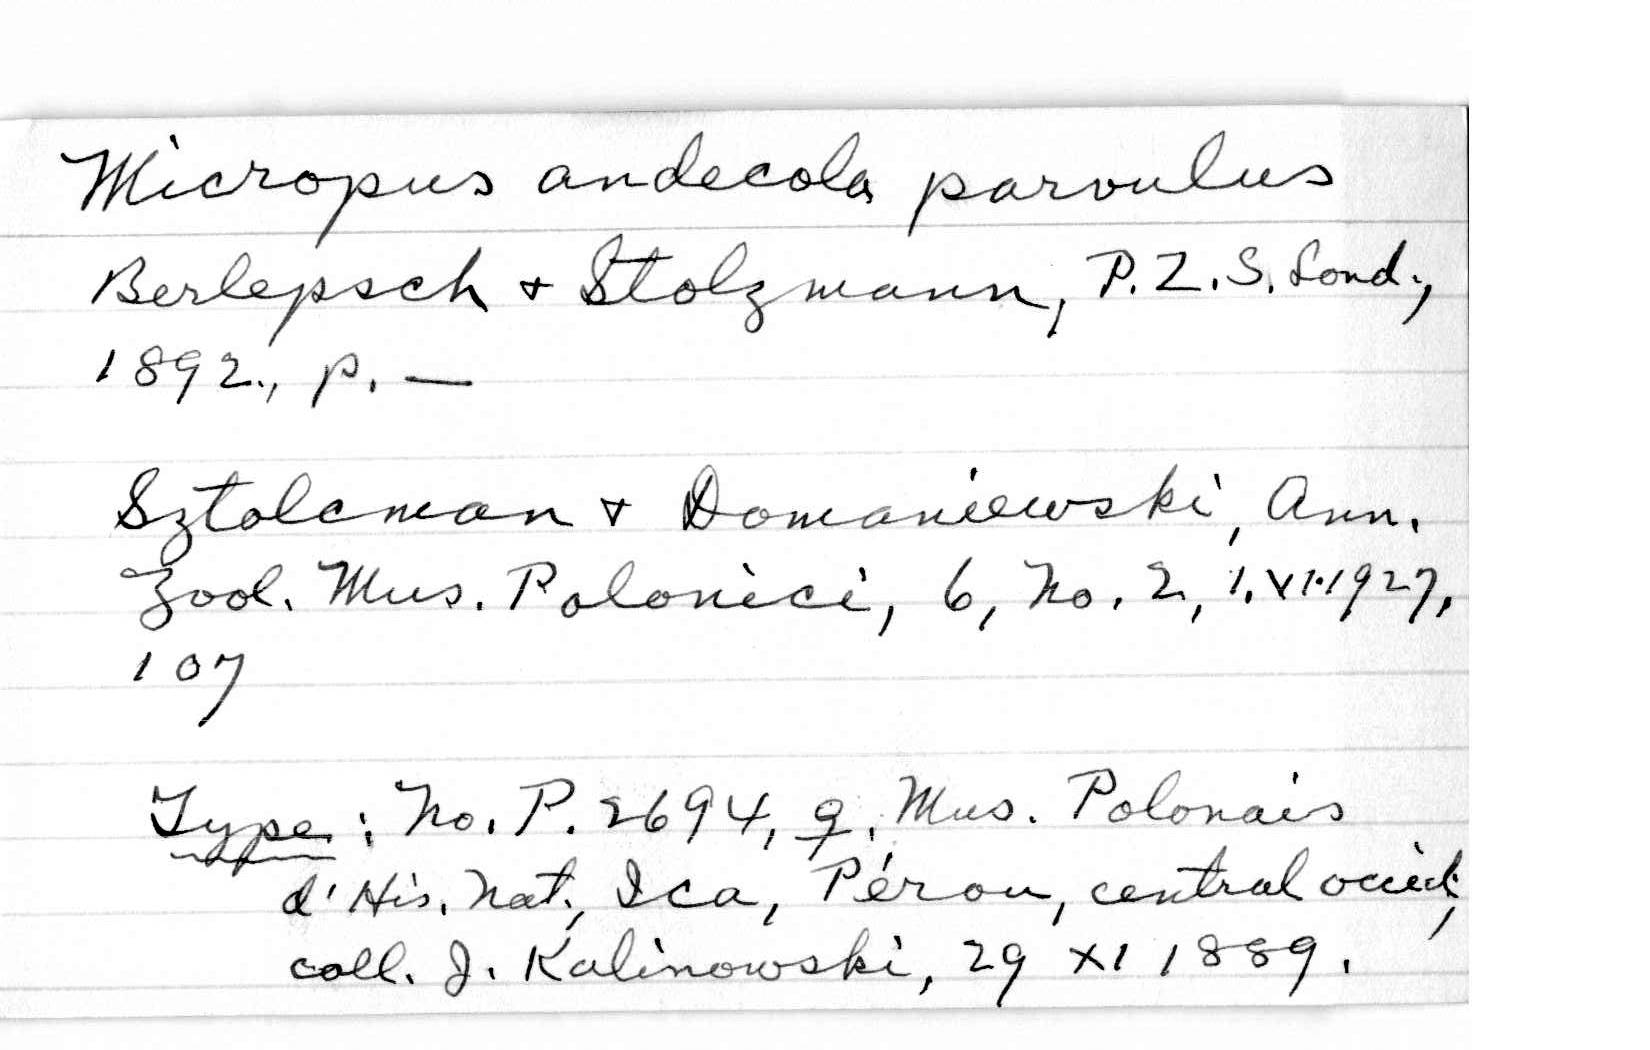 Micropus andecola parvulus
Berlepsch + Stolzmann, P.Z.S. Lond.,
1892., p. —
Sztolcman + Domaniewski, Ann.
Zool. Mus. Polonici, 6, No. 2, 1.VI.1927,
107
Type: No. P. 2694, ♀, Mus. Polonais
d'His. Nat., Ica, Pérou, central occid.,
coll. J. Kalinowski, 29 XI 1889.